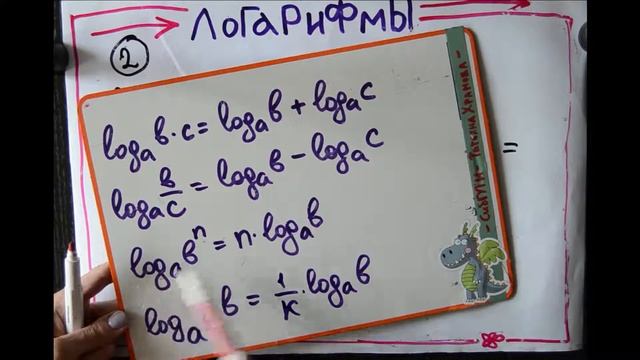 ЛОГАРИФМЫ
2
logₐ b·c = logₐ b + logₐ c
logₐ b/c = logₐ b − logₐ c
logₐ bⁿ = n·logₐ b
logₐ b = 1/k·logₐ b
=
- СибГУТИ - Татьяна Храмова -